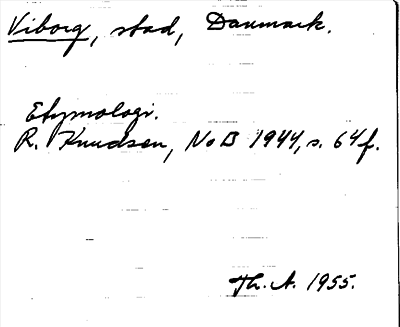 Viborg, stad, Danmark.
Etymologi.
R. Knudsen, NoB 1944, s. 64f.
Th. A. 1955.